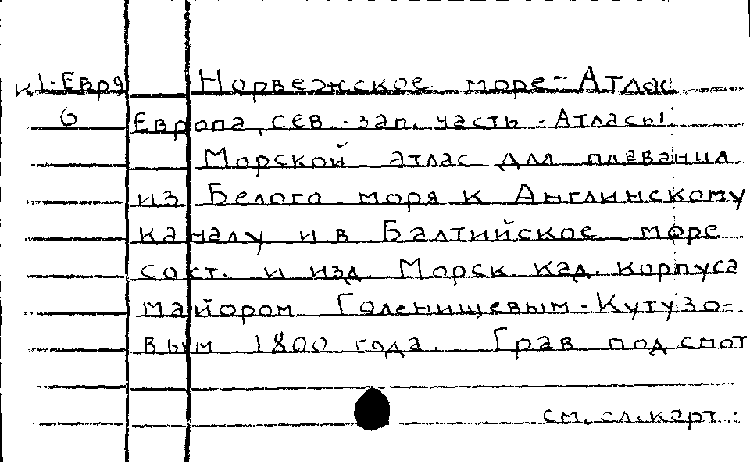 К1-Евря Норвежское море-Атлас
6 Европа, сев.-зап. часть-Атласы
Морской атлас для плавания
из Белого моря к Англинскому
каналу и в Балтийское море
сост. и изд. Морск. кад. корпуса
майором Голенищевым-Кутузо-
вым 1800 года. Грав под смот
см. сл. карт.: